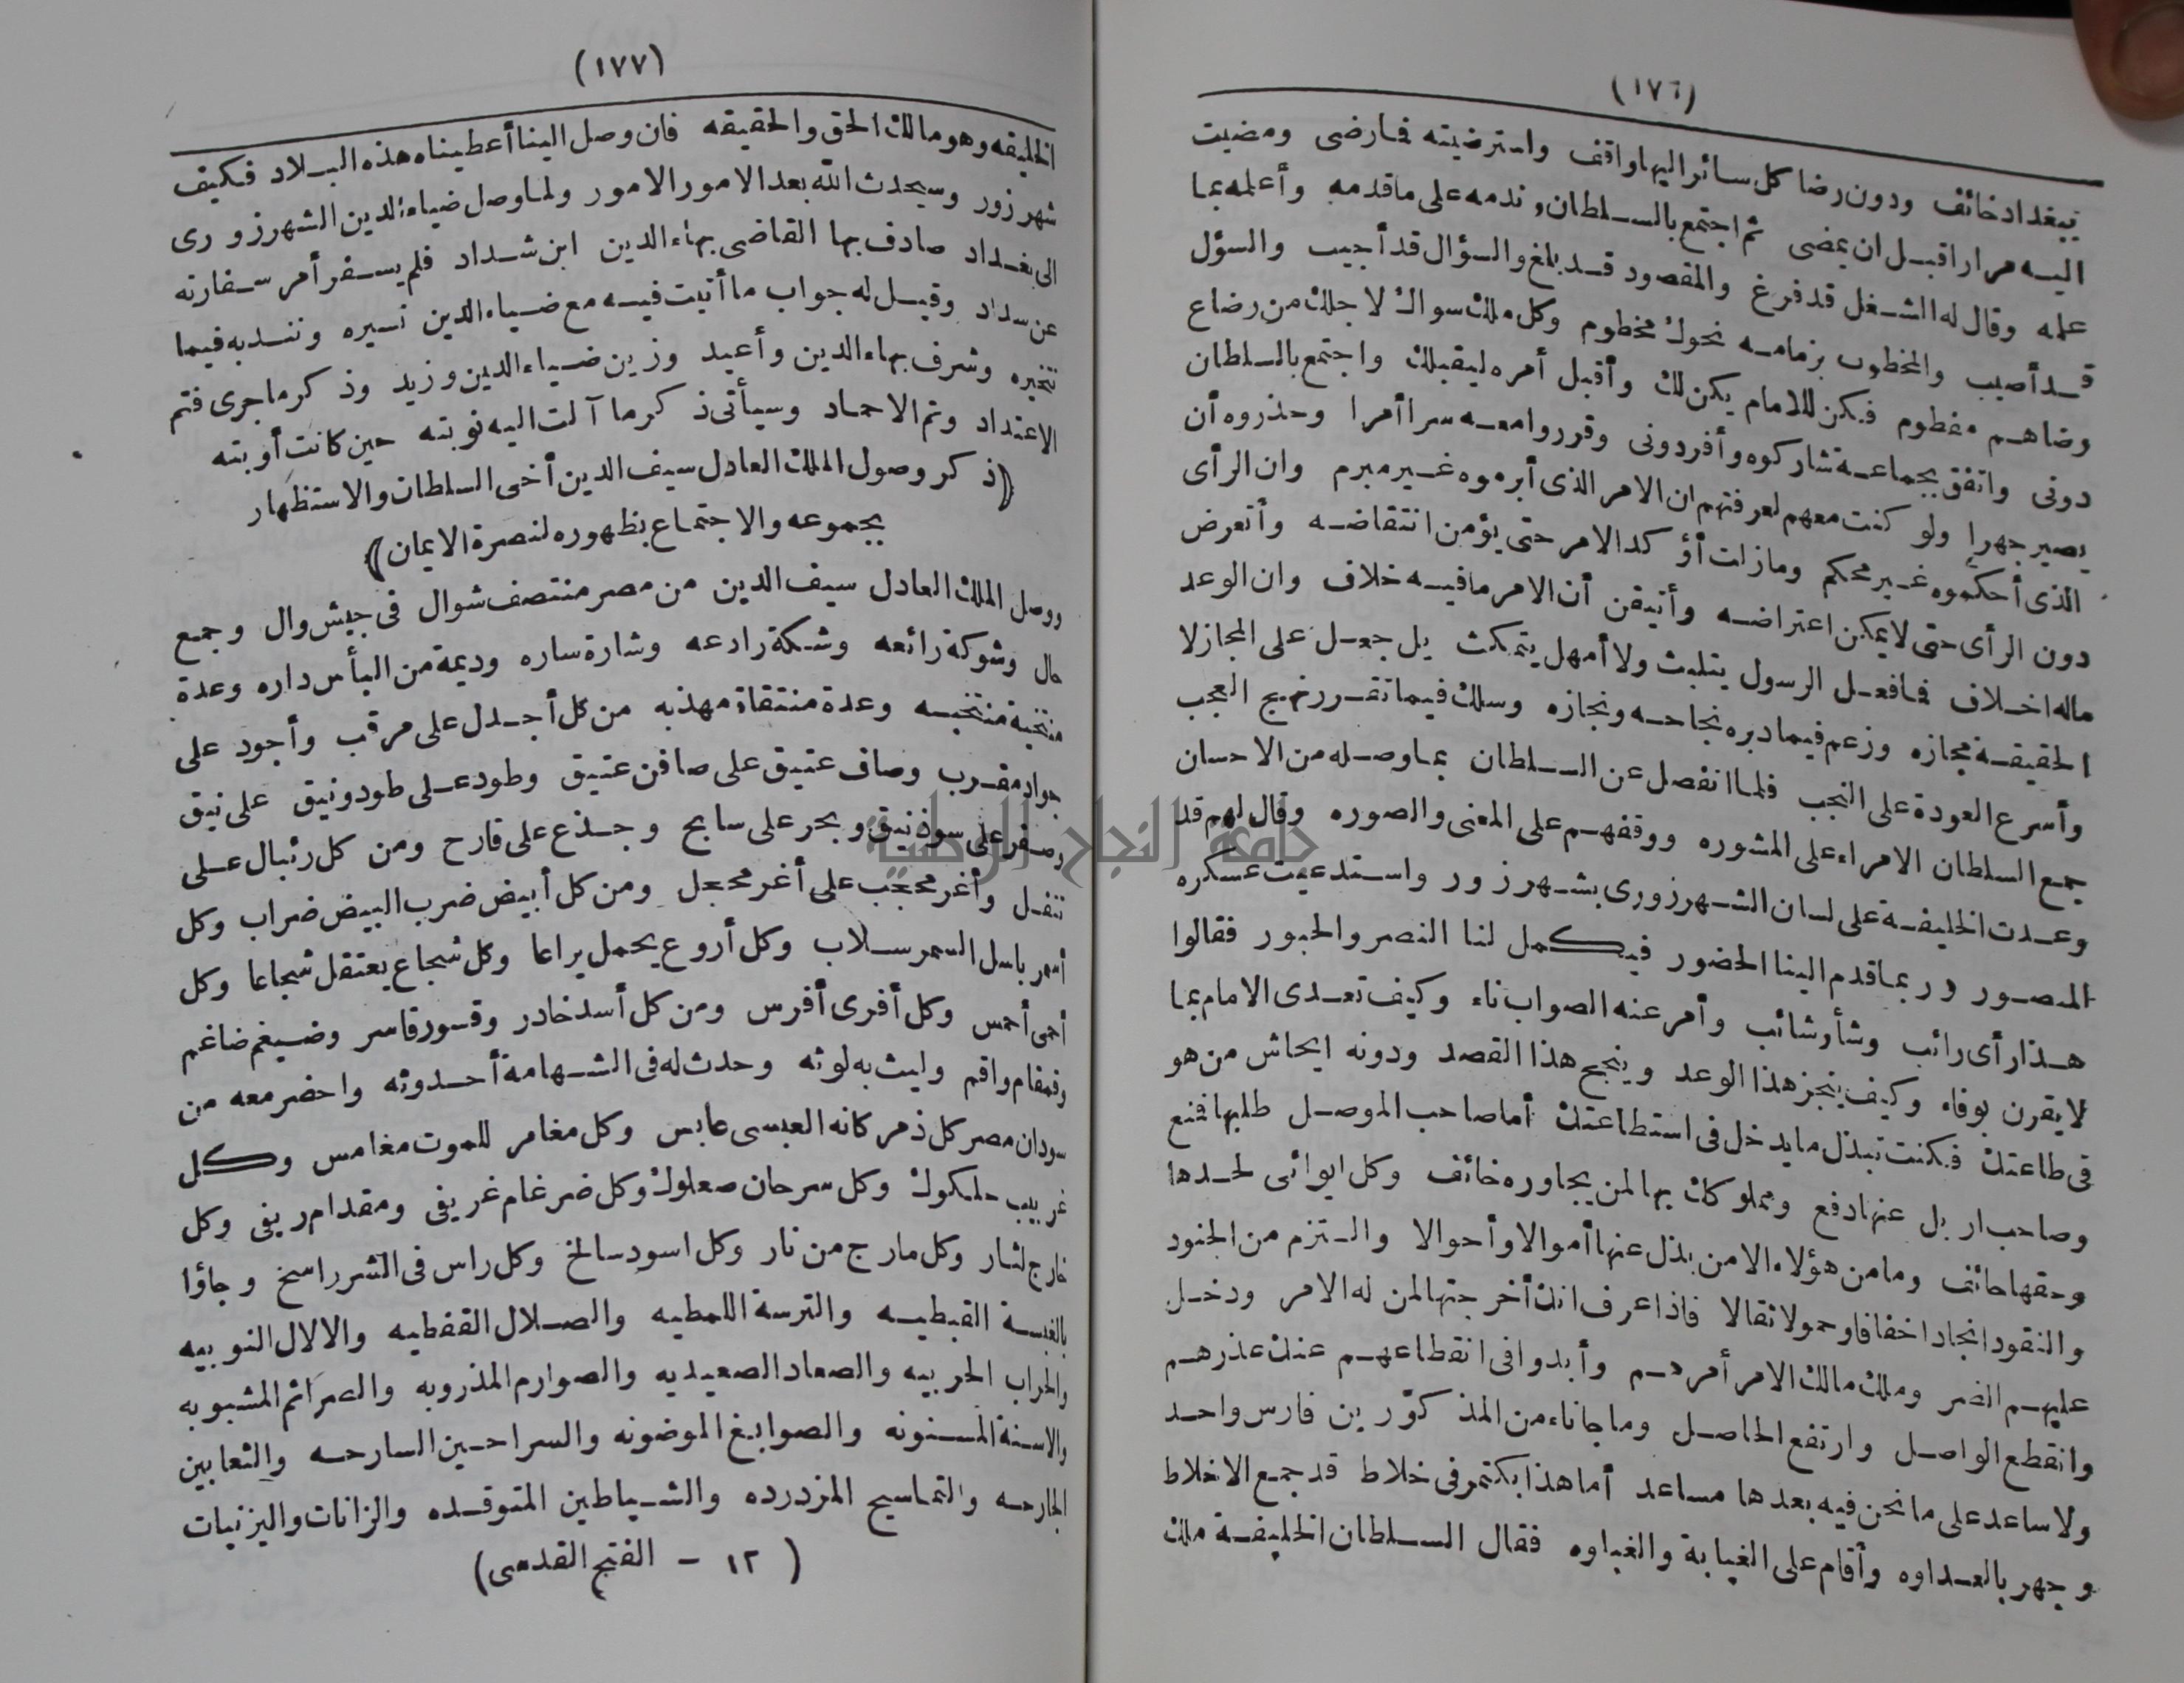 (١٧٦)
ببغداد خائف ودون رضا كل سائر اليها واقف واسترضيته فما رضى ومضيت
اليه مرارا قبل ان يمضى ثم اجتمع بالسلطان وندمه على ما قدمه وأعلمه بما
علمه وقال له الشغل قد فرغ والمقصود قد بلغ والسؤال قد أجيب والسؤل
قد أصيب والمخطوب بزمامه نحوك مخطوم وكل ملك سواك لاجلك من رضاع
رضاهم مفطوم فكن للامام يكن لك وأقبل أمره ليقبلك واجتمع بالسلطان
دونى واتفق بجماعة تشاركوه وأفردونى وقرروا معه سرا أمرا وحذروه أن
يصير جهرا ولو كنت معهم لعرفتهم ان الامر الذى أبرموه غير مبرم وان الرأى
الذى أحكموه غير محكم وما زلت أؤكد الامر حتى يؤمن انتقاضه وأتعرض
دون الرأى حتى لا يمكن اعتراضه وأتيقن أن الامر ما فيه خلاف وان الوعد
ماله اخلاف فما فعل الرسول يتلبث ولا أمهل يتمكث بل جعل على المجاز لا
الحقيقة مجازه وزعم فيما دبره نجاحه ونجازه وسلك فيما تقرر نهج العجب
وأسرع العودة على النجب فلما انفصل عن السلطان بما وصله من الاحسان
جمع السلطان الامراء على المشوره ووقفهم على المعنى والصوره وقال لهم قد
وعدت الخليفة على لسان الشهرزورى بشهرزور واستدعيت عسكره
المنصور وربما قدم الينا الحضور فيكمل لنا النصر والحبور فقالوا
هذا رأى رائب وشأو شائب وأمر عنه الصواب ناء وكيف تعدى الامام بما
لا يقرن بوفاء وكيف ينجز هذا الوعد وينجح هذا القصد ودونه ايحاش من هو
فى طاعتك فكنت تبذل ما يدخل فى استطاعتك أما صاحب الموصل طلبها فمنع
وصاحب اربل عنها دفع ومملوكك بها لمن يجاوره خائف وكل ايوائى لحدها
وحقها حائف وما من هؤلاء الا من بذل عنها أموالا وأحوالا والتزم من الجنود
والنقود انجادا خفافا وحمولا ثقالا فاذا عرف انك أخرجتها لمن له الامر ودخل
عليهم الضر وملك مالك الامر أمرهم وأبدوا فى انقطاعهم عنك عذرهم
وانقطع الواصل وارتفع الحاصل وما جاناء من المذكورين فارس واحد
ولا ساعد على ما نحن فيه بعدها مساعد أما هذا بكتمر فى خلاط قد جمع الاخلاط
وجهر بالعداوه وأقام على الغيابة والغباوه فقال السلطان الخليفة ملك
(١٧٧)
الخليقه وهو مالك الحق والحقيقه فان وصل الينا أعطيناه هذه البلاد فكيف
شهرزور وسيحدث الله بعد الامور الامور ولما وصل ضياء الدين الشهرزورى
الى بغداد صادف بها القاضى بهاء الدين ابن شداد فلم يسفر أمر سفارته
عن سداد وقيل له جواب ما أتيت فيه مع ضياء الدين نسيره ونندبه فيما
نتخيره وشرف بهاء الدين وأعيد وزين ضياء الدين وزيد وذكر ما جرى فتم
الاعتداد وتم الاحماد وسيأتى ذكر ما آلت اليه نوبته حين كانت أوبته
﴿ذكر وصول الملك العادل سيف الدين أخى السلطان والاستظهار
بجموعه والاجتماع بظهوره لنصرة الايمان﴾
ووصل الملك العادل سيف الدين من مصر منتصف شوال فى جيش وال وجمع
حال وشوكة رائعه وشكة رادعه وشارة ساره وديمة من البأس داره وعدة
منتخبة منتجبه وعدة منتقاة مهذبه من كل أجدل على مرقب وأجود على
جواد مقرب وصاف عتيق على صافن عتيق وطود على طود ونيق على نيق
وصقر على سوذنيق وبحر على سابح وجذع على قارح ومن كل رئبال على
تتفل وأغر محجب على أغر محجل ومن كل أبيض ضرب البيض ضراب وكل
أسمر باسل السمر سلاب وكل أروع يحمل يراعا وكل شجاع يعتقل شجاعا وكل
أحمى أحمس وكل أفرى أفرس ومن كل أسد خادر وقسور قاسر وضيغم ضاغم
وقمقام واقم وليث به لوثه وحدث له فى الشهامة أحدوثه واحضر معه من
سودان مصر كل ذمر كانه العبسى عابس وكل مغامر للموت مغامس وكل
غربيب حلكوك وكل سرحان صعلوك وكل ضرغام غريفى ومقدام ريفى وكل
خارج لثار وكل مارج من نار وكل اسود سالخ وكل راس فى الشر راسخ وجاؤا
القبطيه والترسة اللمطيه والصلال القفطيه والالال النوبيه
والحراب الحربيه والصعاد الصعيديه والصوارم المذروبه والعزائم المشبوبه
والاسنة المسنونه والصوابغ الموضونه والسراحين السارحه والثعابين
الجارحه والتماسيح المزدرده والشياطين المتوقده والزانات واليزنيات
(١٢ - الفتح القدسى)
جامعة النجاح الوطنية